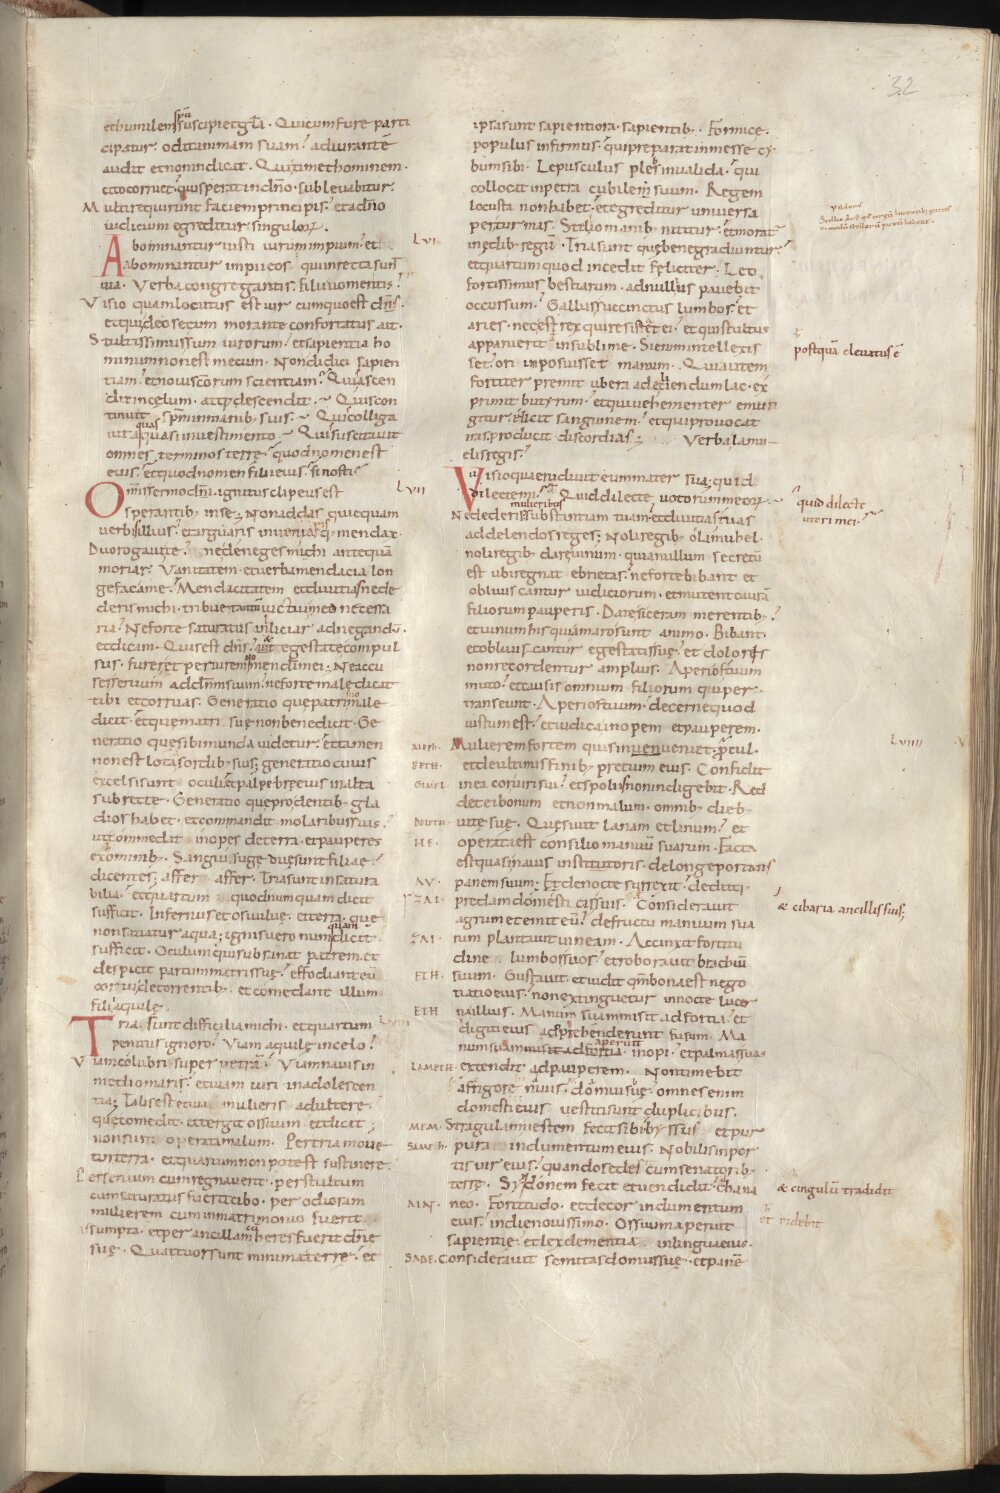 32
et humilem spu suscipiet gła. Qui cum fure parti
cipatur. odit animam suam. adiurantē
audit et non indicat. Qui timet hominem.
cito corruet. qui sperat in dño. sublevabitur.
Multi requirunt faciem principis. et a dño
iudicium egreditur singulorꝝ.
LVI
Abominantur iusti uirum impium. et
abominantur impii eos qui in recta sunt
uia. Verba congregantis. filii uomentis.
Visio quam locutus est uir cum quo est ds̄.
et qui deo secum morante confortatus ait.
Stultissimus sum uirorum. et sapientia ho
minum non est mecum. Non didici sapien
tiam. et non noui scōrum scientiam. Quis ascen
dit in celum. atq; descendit. Quis con
tinuit spm in manib. suis. Quis colliga
uit aquas quasi in uestimento. Quis suscitauit
omnes terminos terrę. quod nomen est
eius. et quod nomen filii eius. si nosti.
LVII
Omnis sermo dñi. ignitus clipeus est
sperantib. in se; Non addas quicquam
uerbis illius. et arguaris inueniarisq; mendax.
Duo rogaui te. ne deneges michi antequā
moriar. Vanitatem et uerba mendacia lon
ge fac a me. Mendacitatem et diuitias ne de
deris michi. tribue tantum uictui meo necessa
ria. Ne forte saturatus illiciar ad negandū.
et dicam. Quis est dñs. aut egestate compul
sus. furer et periurem nomen di mei. Ne accu
ses seruum ad dñm suum. ne forte maledicat
tibi et corruas. Generatio que patri suo male
dicit. et que matri suę non benedicit. Ge
neratio quę sibi munda uidetur. et tamen
non est lota a sordib. suis; generatio cuius
excelsi sunt oculi. et palpebrę eius in alta
subrectę. Generatio que pro dentib. gla
dios habet. et commandit molaribus suis.
ut commedat inopes de terra. et pauperes
ex hominib. Sanguisugę duę sunt filiae
dicentes; affer affer. Tria sunt insatura
bilia. et quartum quod numquam dicit
sufficit. Infernus et os uuluę. et terra. que
non satiatur aqua; ignis uero numquam dicit
sufficit. Oculum qui subsannat patrem. et
despicit partum matris suę. effodiant eū
corui de torrentib. et comedant illum
filii aquilę.
Tria sunt difficilia michi. et quartum
penitus ignoro. Viam aquilę in celo.
Viam colubri super petrā. Viam nauis in
medio maris. et uiam uiri in adolescen
tia; Talis est et uia mulieris adulterę.
quę comedit. et tergit os suum. et dicit;
non sum operata malum. Per tria mouet̄
ter terra. et quartum non potest sustinere.
Per seruum cum regnauerit. per stultum
cum saturatus fuerit cibo. per odiosam
mulierem cum in matrimonio fuerit
assumpta. et per ancillam cū heres fuerit dñę
suę. Quattuor sunt minima terrę. et
ipsa sunt sapientiora sapientib. Formicę.
populus infirmus. qui preparat in messe ci
bum sibi. Lepusculus plebs inualida. qui
collocat in petra cubilem suum. Regem
locusta non habet. et egreditur uniuersa
per turmas. Stelio manib. nititur. et morat̄
in ędib. regū. Tria sunt quę bene gradiuntur.
et quartum quod incedit feliciter. Leo
fortissimus bestiarum. ad nullius pauebit
occursum. Gallus succinctus lumbos. et
aries. nec est rex qui resistat ei. et qui stultus
apparuerit in sublime. Si enim intellexis
set. ori imposuisset manum. Qui autem
fortiter premit ubera ad eliciendum lac. ex
primit butyrum. et qui uehementer emun
gitur. elicit sanguinem. et qui prouocat
iras. producit discordias; Verba lamu
elis regis.
Visio qua erudiuit eum mater sua; quid
dilecte mi. Quid dilecte uotorum meorꝝ.
Ne dederis mulieribus substantiam tuam. et diuitias tuas
ad delendos reges; Noli regib. o lamuhel.
noli regib. dare uinum. quia nullum secretū
est ubi regnat ebrietas. ne forte bibant et
obliuiscantur iudiciorum. et mutent causā
filiorum pauperis. Date siceram merentib.
et uinum his qui amaro sunt animo. Bibant.
et obliuiscantur egestatis suę. et doloris
non recordentur amplius. Aperi os tuum
muto. et causis omnium filiorum qui per
transeunt. Aperi os tuum. decerne quod
iustum est. et iudica inopem et pauperem.
LVIIII
ALEPH. Mulierem fortem quis inueniet. procul.
BETH. et de ultimis finib. pretium eius. Confidit
GIMEL. in ea cor uiri sui. et spoliis non indigebit. Red
det ei bonum et non malum. omnib. dieb.
DELETH. uitę suę. Quęsiuit lanam et linum. et
HE. operata est consilio manuū suarum. Facta
est quasi nauis institoris. de longe portans
AV. panem suum; Et de nocte surrexit. deditq;
ZAI. predam domesticis suis. Considerauit
agrum et emit eū. de fructu manuum sua
ZAI. rum plantauit uineam. Accinxit fortitu
dine lumbos suos. et roborauit brachiū
ETH. suum. Gustauit. et uidit qm bona est nego
tiatio eius. non extinguetur in nocte lucer
ETH na illius. Manum suam misit ad fortia. et
digiti eius adprehenderunt fusum. Ma
num suam misit ad fortia aperuit inopi. et palmas suas
LAMETH. extendit ad pauperem. Non timebit
a frigore niuis. domui suę. omnes enim
domestici eius uestiti sunt duplicibus.
MEM. Stragulam uestem fecit sibi. byssus et pur
SAMECH. pura indumentum eius. Nobilis in por
tis uir eius. quando sederit cum senatorib.
terrę. Syndonem fecit et uendidit. chana
AIN. neo. Fortitudo. et decor indumentum
eius. in die nouissimo. Os suum aperuit
sapientię. et lex clementia in lingua eius.
SADE. Considerauit semitas domus suę. et panē
postquā eleuatus ē
quid dilecte
uteri mei.
& cibaria ancillis suis;
& cingulū tradidit
et ridebit